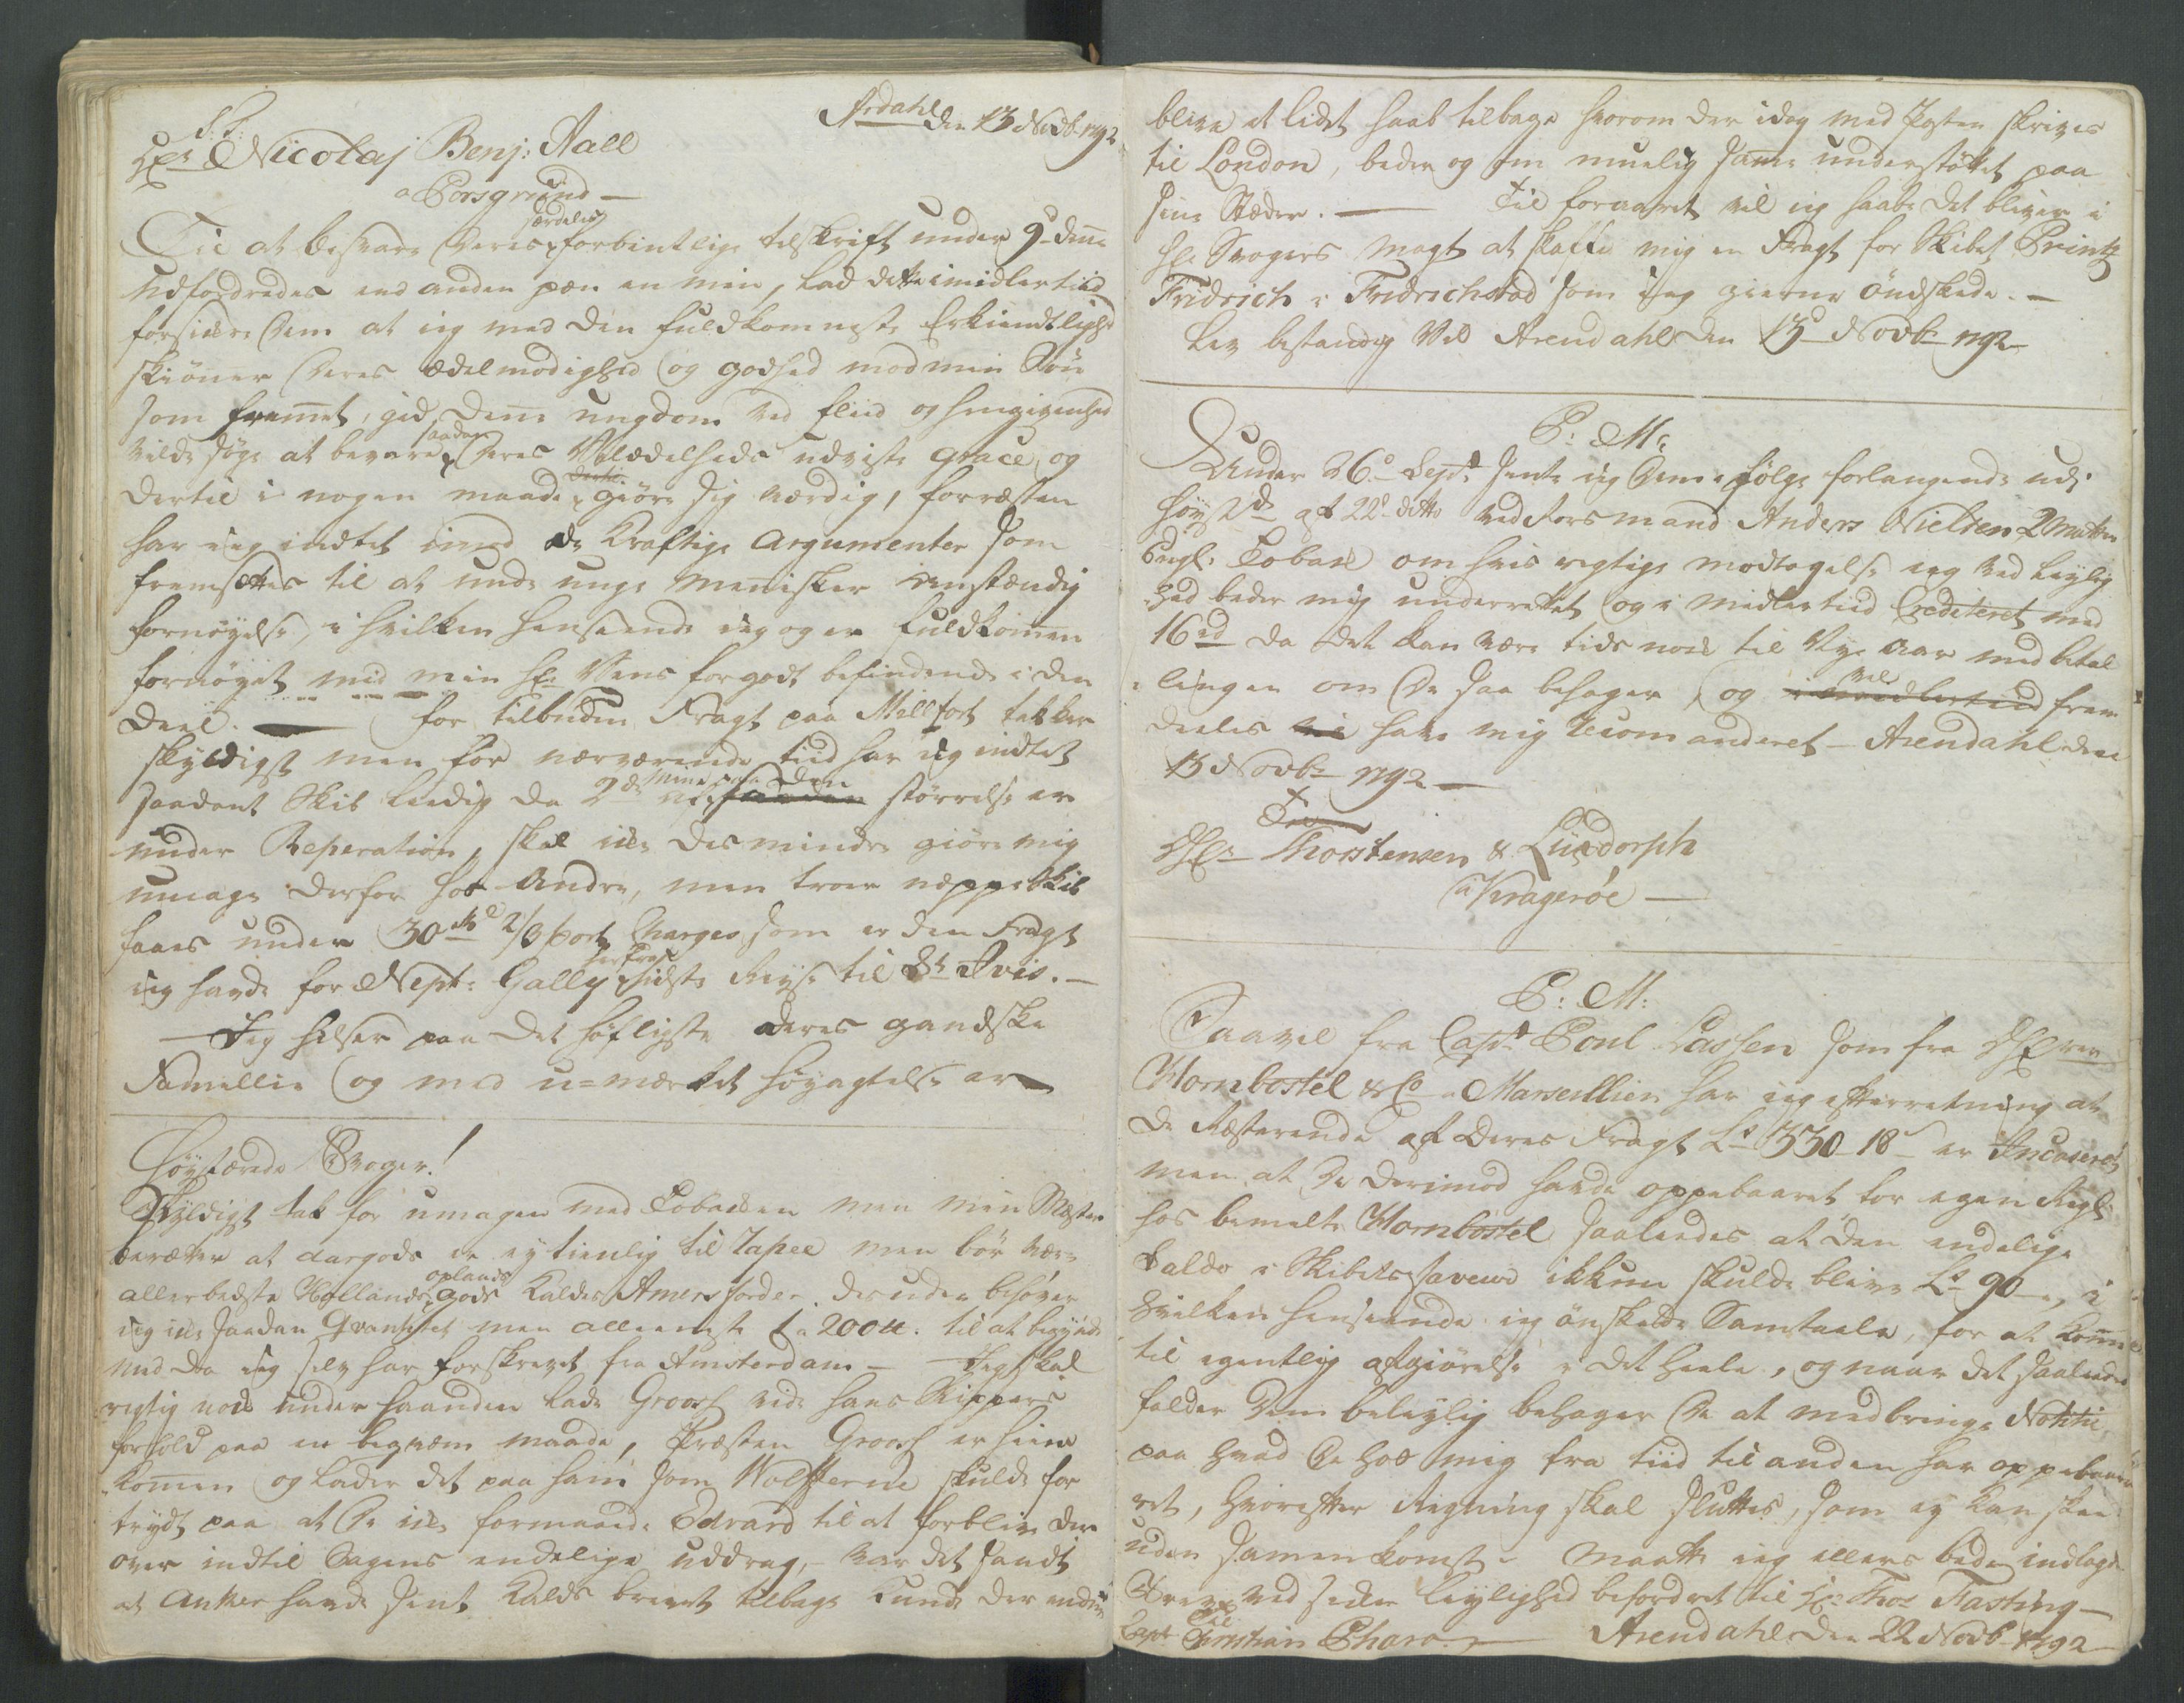 Ardahl den 13 Novb 1792
S. T.
Hr Nicolaj Benj: Aall
a Porsgrund —
Til at besvare Deres særdeles forbintlige tilskrift under 9de denne
udfordredes end anden pæn en min, lad dette imidlertiid
forsikre Dem at ieg med den fuldkomneste Erkiendtlighed
skiönner Deres ædelmodighed og godhed mod min Sön
som fremmet, gid denne ungdom ved fliid og hengivenhed
vilde söge at bevare saadan Deres Velædelheds udviste grace, og
dertil i nogen maade giöre sig værdig, forresten
har ieg indtet imod de Kraftige Argumenter som
fremsættes til at unde unge Menisker anstændig
fornöyelse, i hvilken henseende ieg og er fuldkommen
fornöyet med min Hr Vens forgodt befindende i den
Deel. — for tilbuden Fragt paa Millfort takker
skyldigst men for nærværende tiid har ieg indtet
saadant Skib ledig da 2de af Mine paa den störrelse er
under Reperation, skal ikke desmindre giöre mig
umage derfor hos Andre, men troer neppe Skib
faaes under 30 2/3 port Charges som er den Fragt
ieg havde for Nept: Gally sidste Reyse til St Ives. —
— Jeg hilser paa det höfligste Deres gandske
Familie og med u=mærket Höyagtelse er —
Höystærede Svoger!
Skyldigst tak for umagen med Tobakken men min Mester
beretter at aargods er ey tienlig til Rapee men bör være
allerbedste Hollands oplands gods kaldes Amersforder. desuden behöver
ieg ikke saadan Qvantitet men alleeneste ca 200 tt. til at begynde
med da ieg selv har forskrevet fra Amsterdam — Jeg skal
rigtig nok under haanden lade Groosh vide hans Skippers
forhold paa en beqvæm maade, Præsten Groosh er hiem
kommen og lader det paa ham som Wolfferne skulde for
trydt paa at De ikke formaaede Edvard til at forblive der
over indtil Sagens endelige uddrag, — var det sandt
at Anker havde sent Kalds brevet tilbage kunde der endnu
blive et lidet haab tilbage hvorom der idag med Posten skrives
til London, beder og om muelig samme understöttet paa
sine Steder. — Til foraaret vil ieg haabe det bliver i
Hr Svogers Magt at skaffe mig en Fragt for Skibet Printz
Fridrich i Fridrichstad som ieg gierne öndskede. —
Lev bestandig Vel Arendahl den 13 Novb 1792
P: M:
Under 26de Sept. sente ieg Dem efölge forlangende udi
höyst af 22de ditto ved Formand Anders Nielsen 2 Matter
Engl. Toback om hvis rigtige modtagelse ieg ved leylig
hed beder mig underrettet og imidlertiid Crediteret med
16 rd da det kan være tids nok til Nye Aar med betal
lingen om De saa behager, og vel frem
deeles have mig Recommanderet — Arendahl den
13 Novb 1792 —
Til
DHr Thorstensen & Lündorph
i Kragerøe —
P: M:
Saavel fra Capt Poul Lassen som fra DHerrer
Hornbostel & Co i Marseillien har ieg efterretning at
De Resterende af Deres Fragt Ls 330 18 er Incaseret
men at De derimod havde oppebaaret for egen Regl
hos bemelte Hornbostel saaledes at den endelige
Saldo i Skibets faveur ikkun skulde blive Ls 90, i
hvilken henseende ieg önskede Samtaele, for at komme
til egentlig afgiörelse i det heele, og naar det saaledes
falder Dem beleylig behager De at medbringe Notitie
paa hvad De hos mig fra tiid til anden har oppebaa
ret, hvorefter Regning skal sluttes, som ey kan skee
uden Samenkomst. Maatte ieg ellers bede indlagde
Breve ved sikker leylighed befordret til Hr Thor Fasting —
Til
Capt Christian Pharo. — Arendahl den 22 Novb 1792